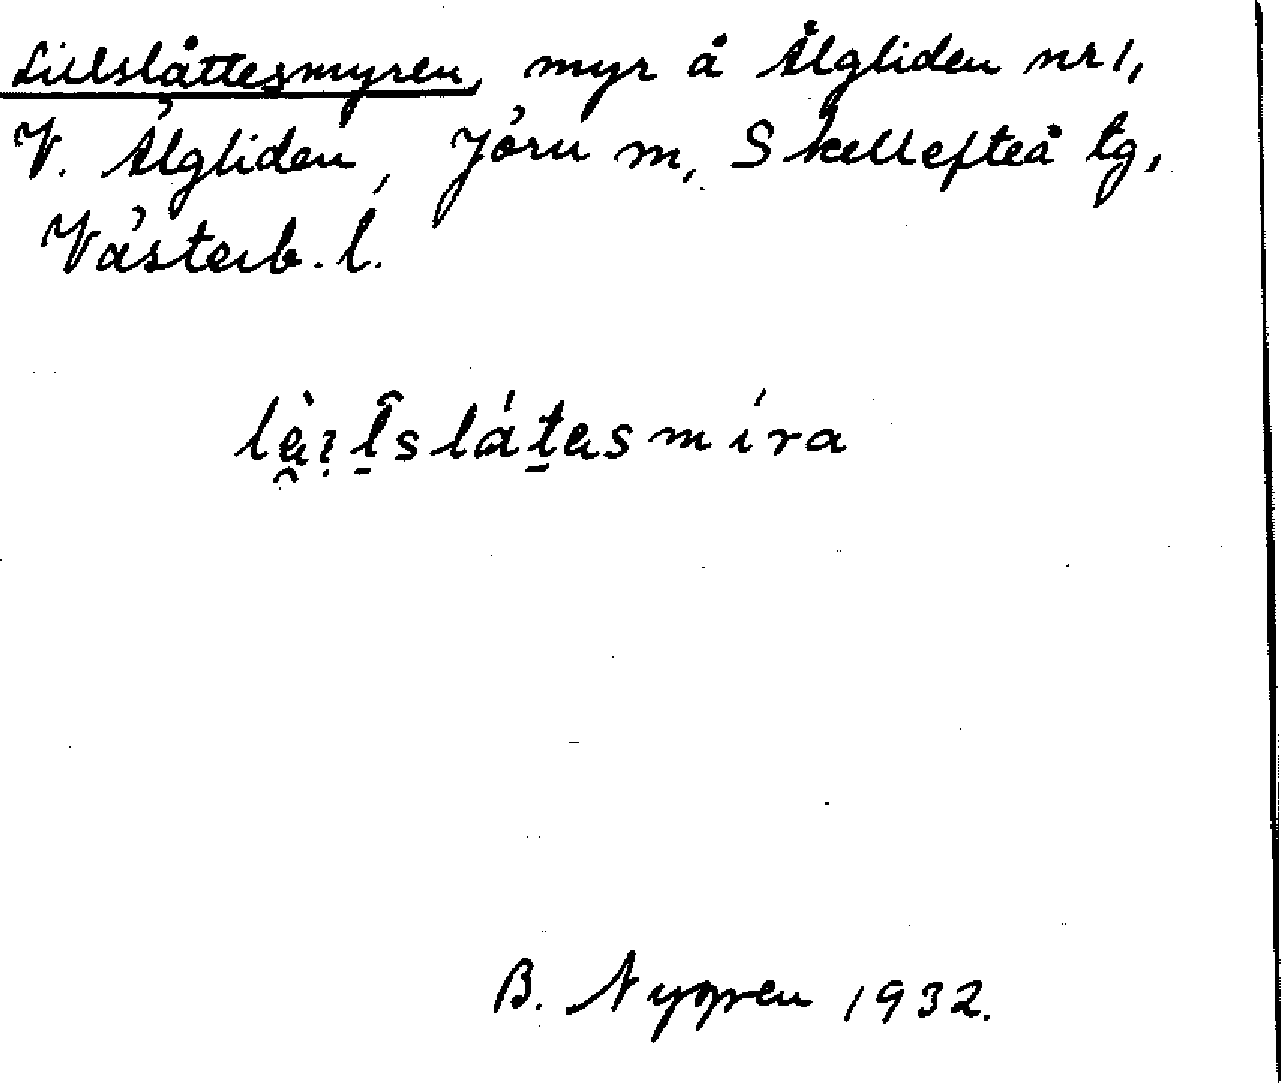 Lillslåttesmyren, myr å Älgliden nr 1,
V. Älgliden, Jörn m, Skellefteå tg,
Västerb. l.
slátasmíra
B. Nygren 1932.